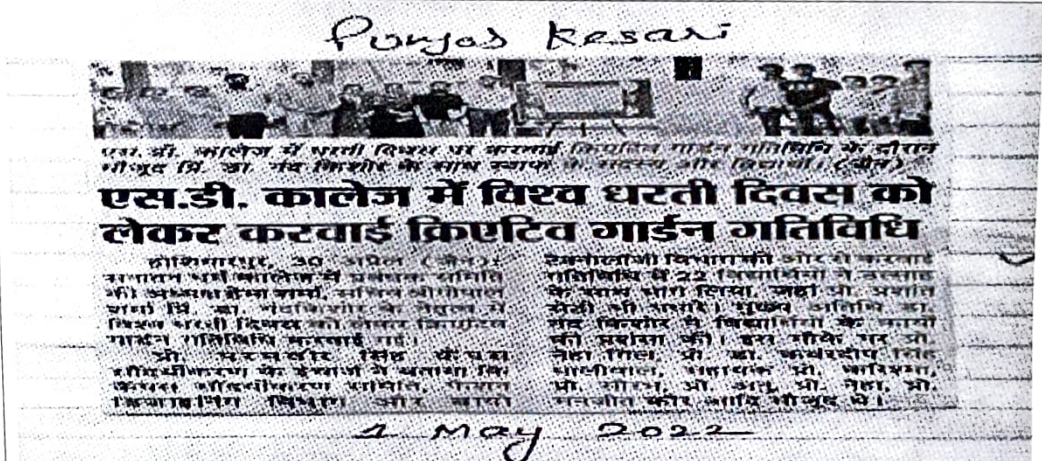 Punjab Kesari
एस.डी. कालेज में धरती दिवस पर करवाई क्रिएटिव गार्डन गतिविधि के दौरान
मौजूद प्रिं. डा. नंद किशोर के साथ स्टाफ के सदस्य और विद्यार्थी। (जैन)
एस.डी. कालेज में विश्व धरती दिवस को
लेकर करवाई क्रिएटिव गार्डन गतिविधि
होशियारपुर, 30 अप्रैल (जैन):
सनातन धर्म कालेज में प्रबंधक समिति
की अध्यक्ष हेमा शर्मा, सचिव श्रीगोपाल
शर्मा प्रिं. डा. नंदकिशोर के नेतृत्व में
विश्व धरती दिवस को लेकर क्रिएटिव
गार्डन गतिविधि करवाई गई।
प्रो. सिंह कैंपस
सौंदर्यीकरण के इंचार्ज ने बताया कि
कैंपस सौंदर्यीकरण समिति, फैशन
डिजाइनिंग विभाग और बायो
टैक्नोलॉजी विभाग की ओर से करवाई
गतिविधि में 22 विद्यार्थियों ने उत्साह
के साथ भाग लिया, जहां प्रो. प्रशांत
सेठी भी पधारे। मुख्य अतिथि डा.
नंद किशोर ने विद्यार्थियों के कार्यों
की प्रशंसा की। इस मौके पर प्रो.
नेहा गिल, प्रो. डा. कंवरदीप सिंह
धालीवाल, सहायक प्रो. करिश्मा,
प्रो. सौरभ, प्रो. अनु, प्रो. नेहा, प्रो.
मनजीत कौर आदि मौजूद थे।
1 May 2022